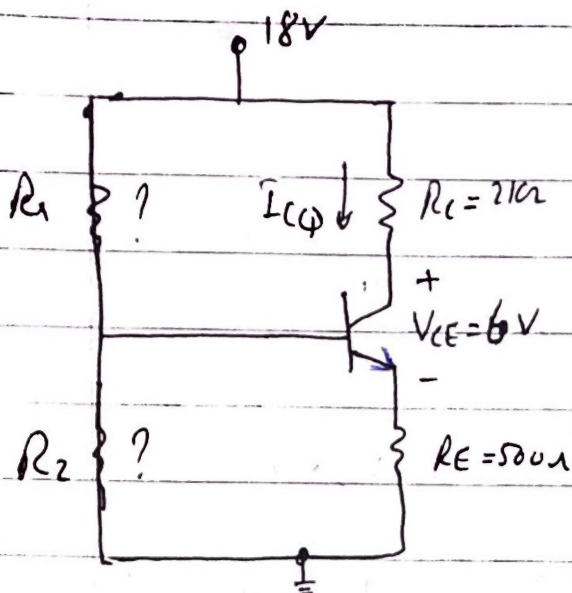 18V
R1 ?
ICQ ↓
RC = 2KΩ
+
VCE = 6V
-
R2 ?
RE = 500Ω